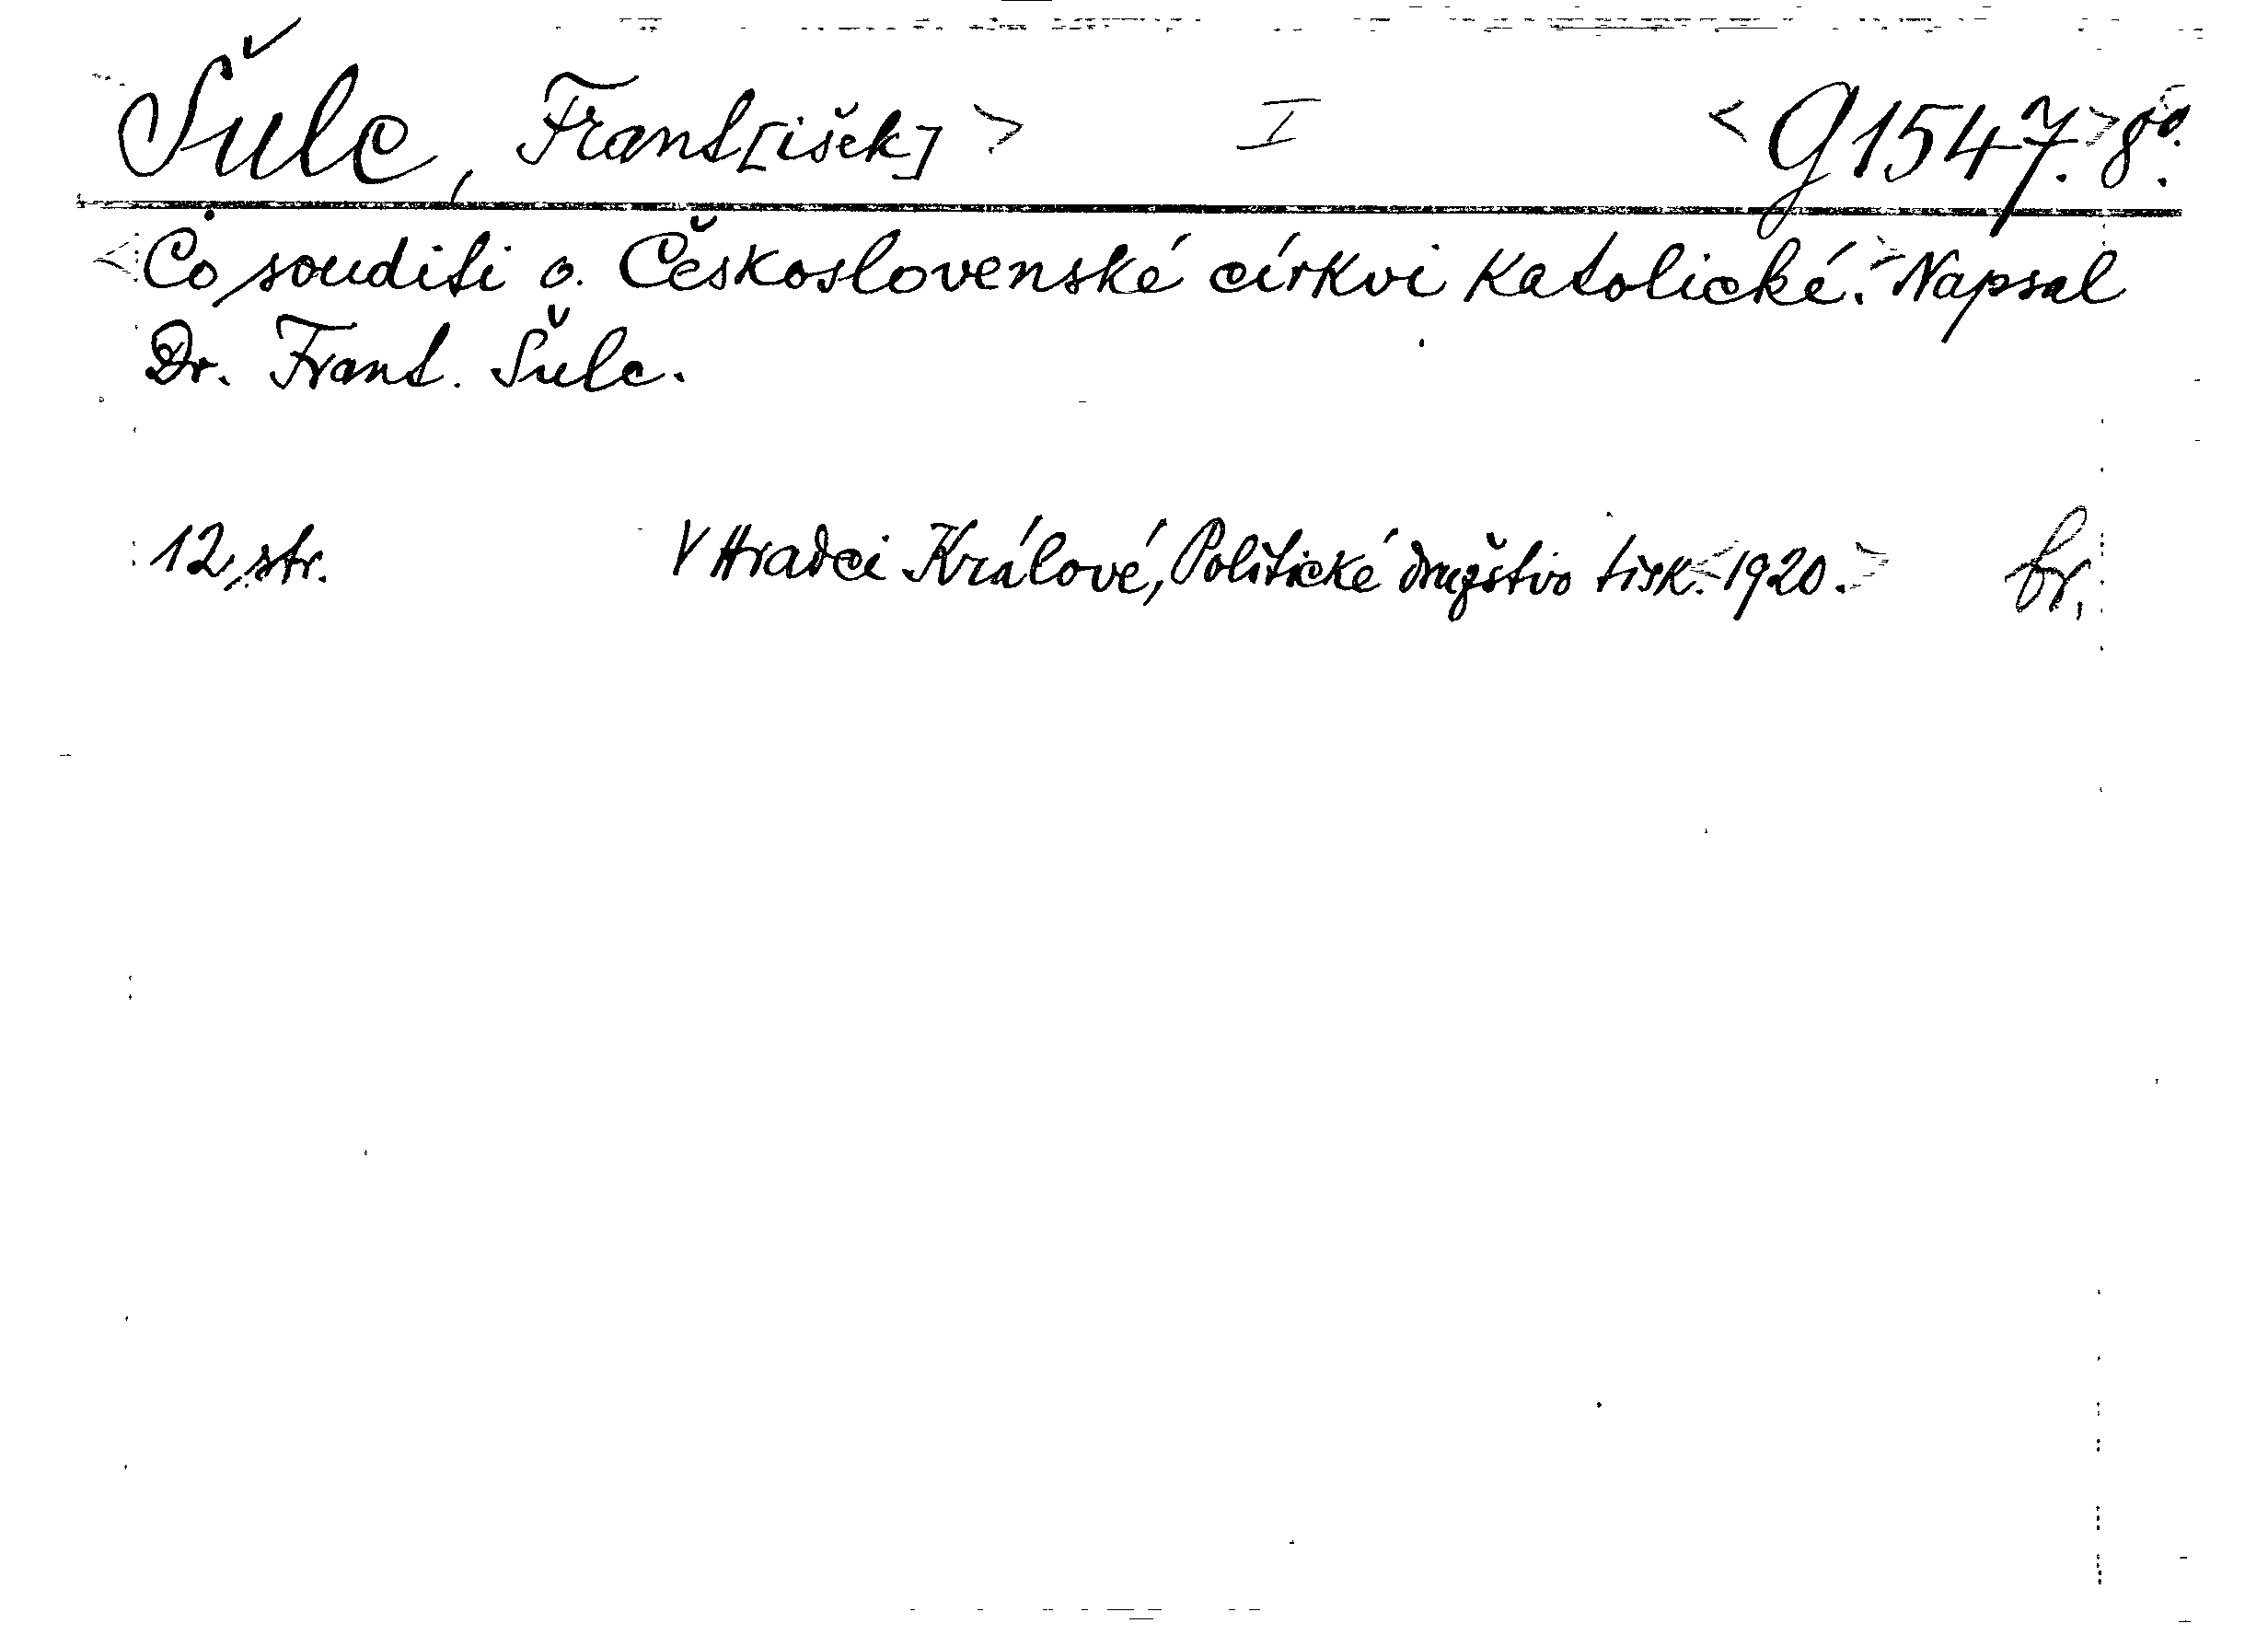 Šulc, Frant[išek] > I <G1547.> 8°.
<Co souditi o. Československé církvi katolické.> Napsal
Dr. Frant. Šulc.
12 str. V Hradci Králové, Politické družstvo tisk. <1920.> br.